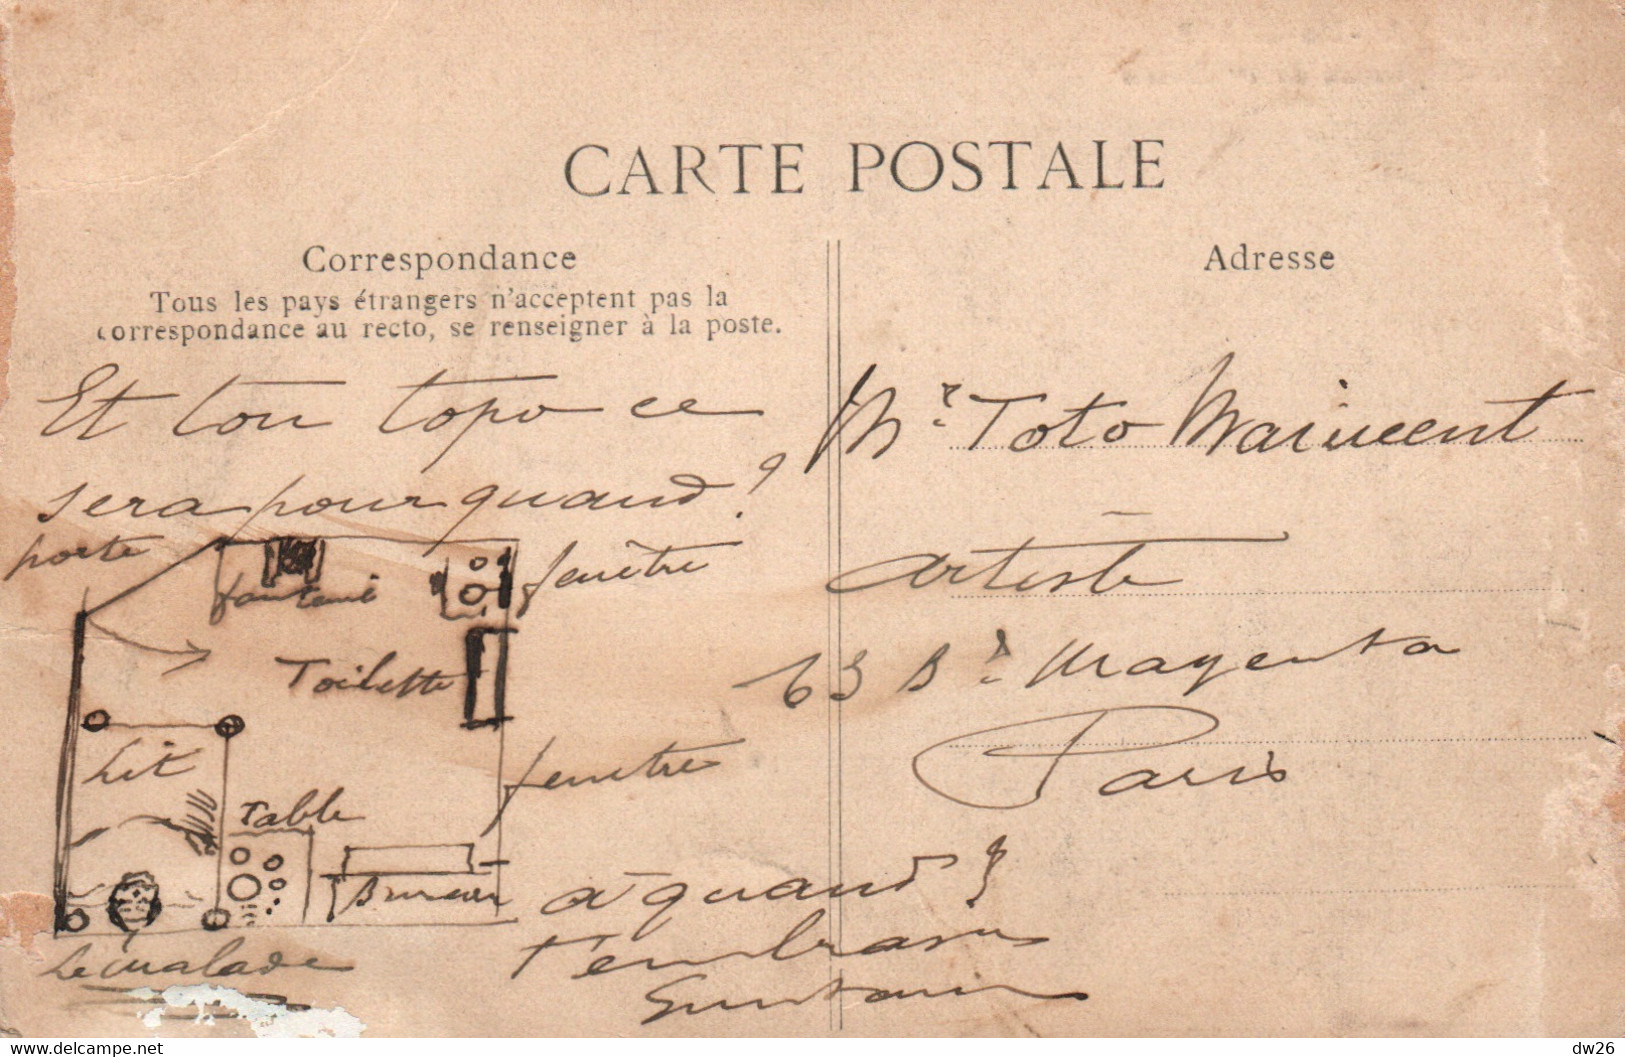 CARTE POSTALE
Correspondance
Tous les pays étrangers n'acceptent pas la
correspondance au recto, se renseigner à la poste.
Et ton topo ce
sera pour quand ?
porte
fauteuil
fenêtre
Toilette
Lit
fenêtre
Table
Bureau
Le malade
à quand ?
t'embrasse
Adresse
Mr Toto
Artiste
63 Bd Magenta
Paris
www.delcampe.net
dw26